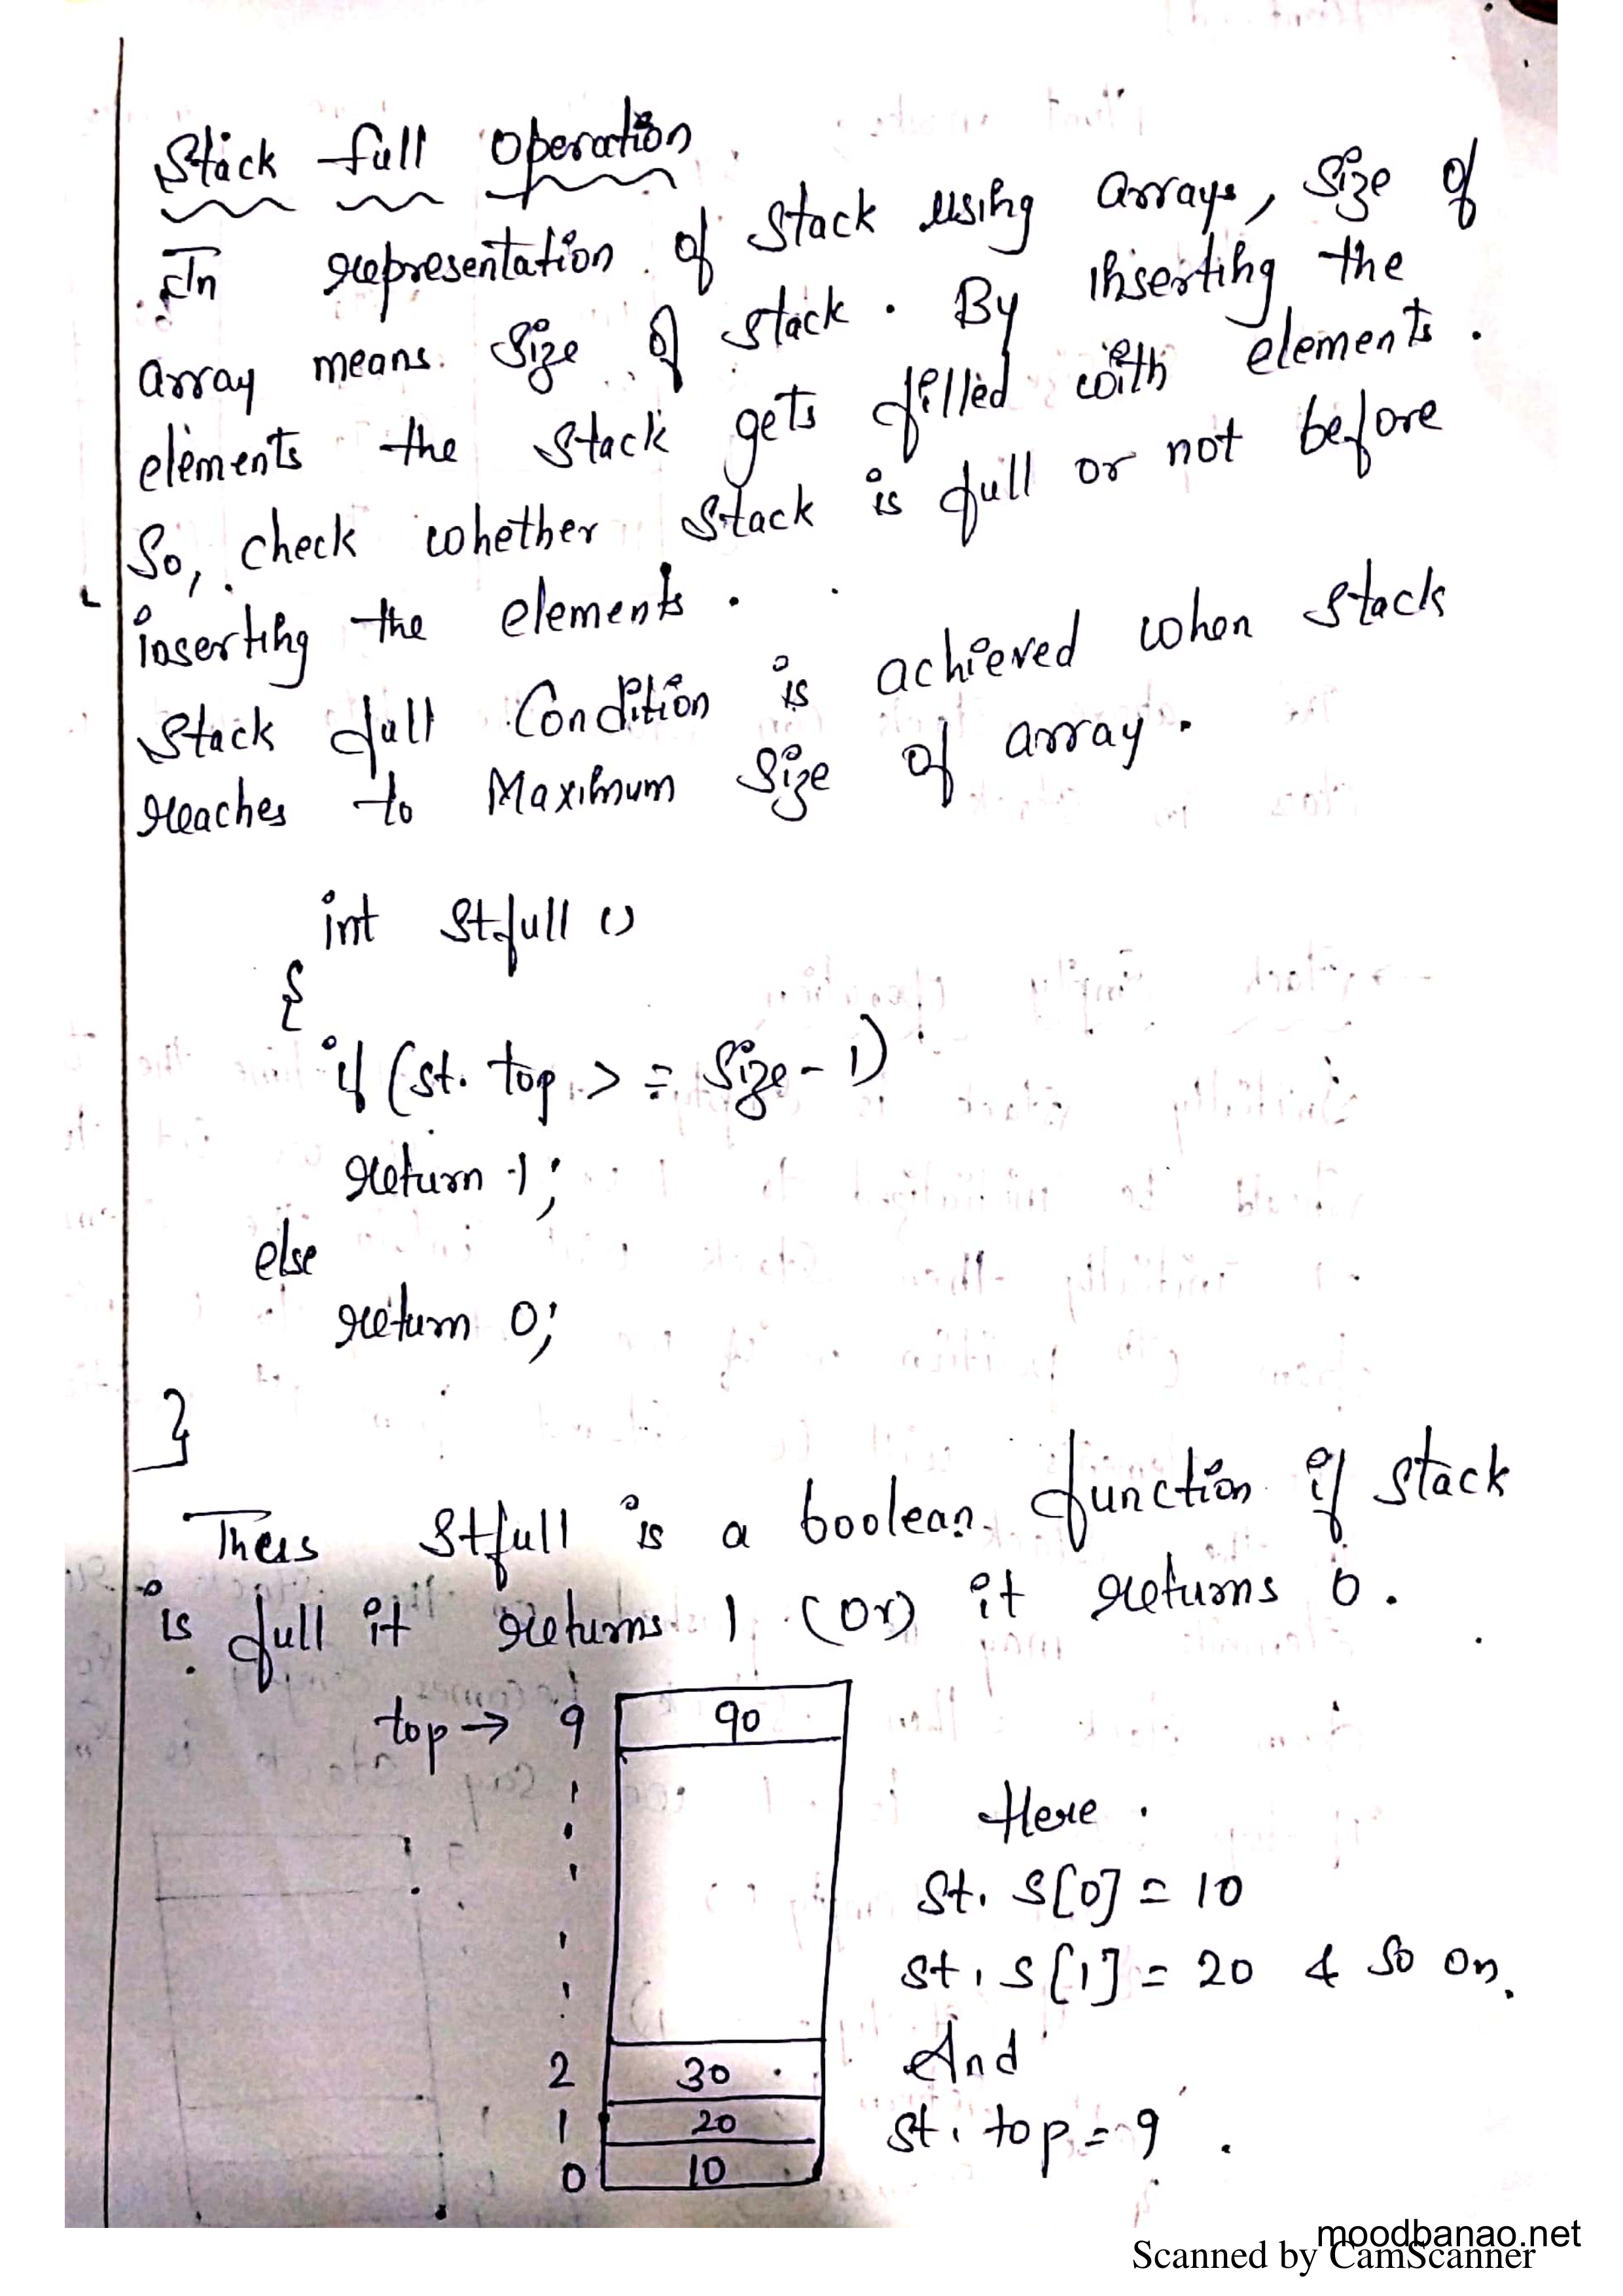 Stack full Operation
In representation of stack using arrays, size of
array means size of stack. By inserting the
elements the stack gets filled with elements.
So, check whether stack is full or not before
inserting the elements.
Stack full Condition is achieved when stack
reaches to Maximum size of array.
int stfull ()
{
if (st. top > = size - 1)
return 1;
else
return 0;
}
Thus stfull is a boolean function if stack
is full it returns 1 (or) it returns 0.
top → 9 90
Here
st. s[0] = 10
st. s[1] = 20 & so on.
2 30 And
1 20 st. top = 9
0 10
moodbanao.net
Scanned by CamScanner